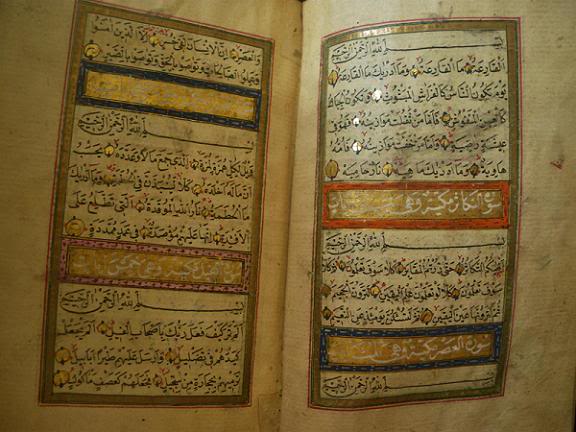 بِسْمِ اللّٰهِ الرَّحْمٰنِ الرَّحِيمِ
اَلْقَارِعَةُ مَا الْقَارِعَةُ وَمَا اَدْرٰيكَ مَا الْقَارِعَةُ
يَوْمَ يَكُونُ النَّاسُ كَالْفَرَاشِ الْمَبْثُوثِ وَتَكُونُ الْجِبَالُ
كَالْعِهْنِ الْمَنْفُوشِ فَاَمَّا مَنْ ثَقُلَتْ مَوَازِينُهُ فَهُوَ فِى
عِيشَةٍ رَاضِيَةٍ وَاَمَّا مَنْ خَفَّتْ مَوَازِينُهُ فَاُمُّهُ
هَاوِيَةٌ وَمَا اَدْرٰيكَ مَا هِيَهْ نَارٌ حَامِيَةٌ
سورة التكاثر مكية وهى ثمان ايات
بِسْمِ اللّٰهِ الرَّحْمٰنِ الرَّحِيمِ
اَلْهٰيكُمُ التَّكَاثُرُ حَتّٰى زُرْتُمُ الْمَقَابِرَ كَلَّا سَوْفَ تَعْلَمُونَ ثُمَّ كَلَّا
سَوْفَ تَعْلَمُونَ كَلَّا لَوْ تَعْلَمُونَ عِلْمَ الْيَقِينِ لَتَرَوُنَّ الْجَحِيمَ
ثُمَّ لَتَرَوُنَّهَا عَيْنَ الْيَقِينِ ثُمَّ لَتُسْئَلُنَّ يَوْمَئِذٍ عَنِ النَّعِيمِ
سورة العصر مكية وهى ثلث ايات
بِسْمِ اللّٰهِ الرَّحْمٰنِ الرَّحِيمِ
وَالْعَصْرِ اِنَّ الْاِنْسَانَ لَفِى خُسْرٍ اِلَّا الَّذِينَ اٰمَنُوا
وَعَمِلُوا الصَّالِحَاتِ وَتَوَاصَوْا بِالْحَقِّ وَتَوَاصَوْا بِالصَّبْرِ
بِسْمِ اللّٰهِ الرَّحْمٰنِ الرَّحِيمِ
وَيْلٌ لِكُلِّ هُمَزَةٍ لُمَزَةٍ اَلَّذِى جَمَعَ مَالًا وَعَدَّدَهُ يَحْسَبُ
اَنَّ مَالَهُ اَخْلَدَهُ كَلَّا لَيُنْبَذَنَّ فِى الْحُطَمَةِ وَمَا اَدْرٰيكَ
مَا الْحُطَمَةُ نَارُ اللّٰهِ الْمُوقَدَةُ اَلَّتِى تَطَّلِعُ عَلَى
الْاَفْئِدَةِ اِنَّهَا عَلَيْهِمْ مُؤْصَدَةٌ فِى عَمَدٍ مُمَدَّدَةٍ
سورة الفيل مكية وهى خمس ايات
بِسْمِ اللّٰهِ الرَّحْمٰنِ الرَّحِيمِ
اَلَمْ تَرَ كَيْفَ فَعَلَ رَبُّكَ بِاَصْحَابِ الْفِيلِ اَلَمْ يَجْعَلْ
كَيْدَهُمْ فِى تَضْلِيلٍ وَاَرْسَلَ عَلَيْهِمْ طَيْرًا اَبَابِيلَ
تَرْمِيهِمْ بِحِجَارَةٍ مِنْ سِجِّيلٍ فَجَعَلَهُمْ كَعَصْفٍ مَاْكُولٍ